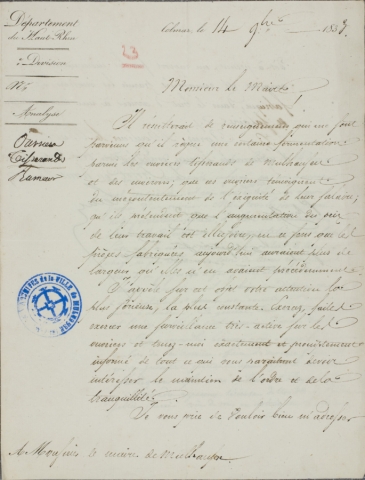 Département
du Haut-Rhin
2e Division
No
Analyse
Ouvriers
Tisserands
Rumeur
23
Colmar, le 14 9bre 1833.
Monsieur le Maire !
Il résulterait de renseignemens qui me sont
parvenus qu'il règne une certaine fermentation
parmi les ouvriers tisserands de Mulhouse
et des environs; que ces ouvriers témoignent
du mécontentement de l'exiguité de leur salaire;
qu'ils prétendent que l'augmentation du prix
de leur travail est illusoire, en ce sens que les
pièces fabriquées aujourd'hui auraient plus de
largeur qu'elles n'en avaient précédemment.
Ce sujet est digne de votre attention la
plus sérieuse, la plus constante. Veuillez faire
exercer une surveillance très active sur les
ouvriers et tenez-moi exactement et promptement
informé de tout ce qui vous paraîtrait devoir
intéresser le maintien de l'ordre et de la
tranquillité.
Je vous prie de vouloir bien m'adresser
A Monsieur le maire de Mulhouse
ARCHIVES de la VILLE de MULHOUSE